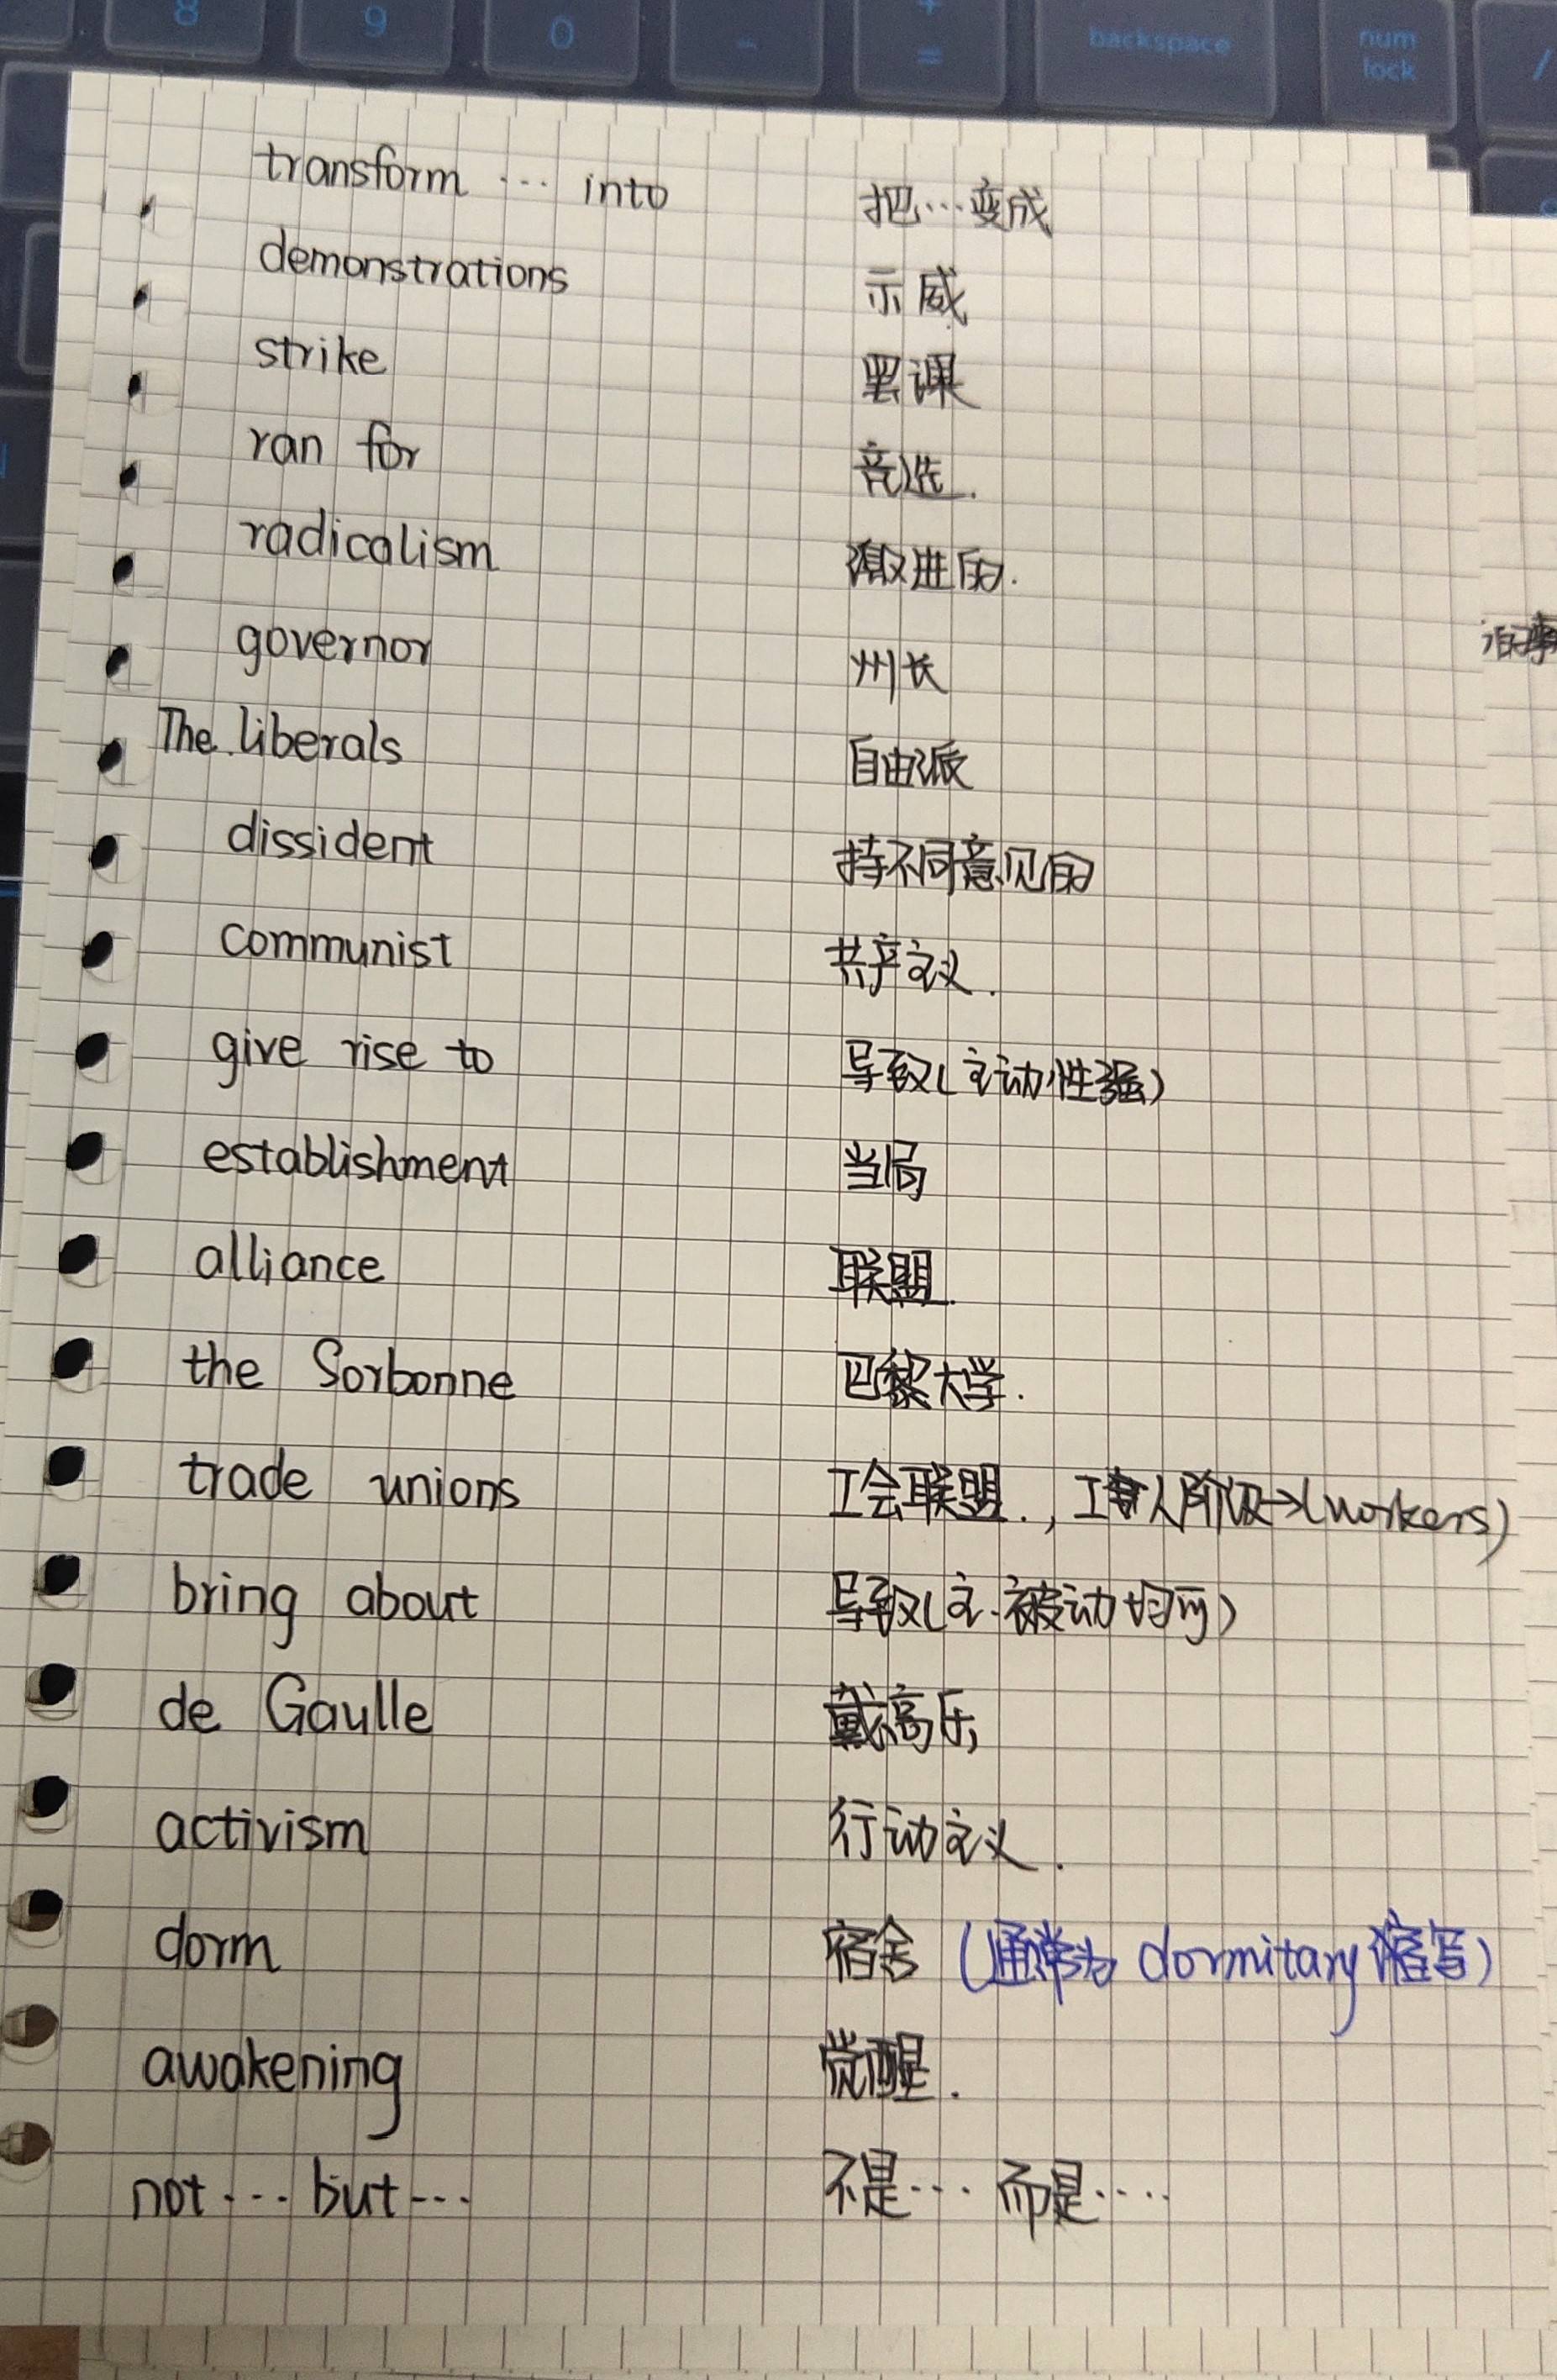 8 9 0 - + = backspace num lock /
transform ... into 把...变成
demonstrations 示威
strike 罢课
ran for 竞选.
radicalism 激进的.
governor 州长
The liberals 自由派
dissident 持不同意见的
communist 共产主义.
give rise to 导致(主动性强)
establishment 当局
alliance 联盟.
the Sorbonne 巴黎大学.
trade unions 工会联盟., 工人阶级→(workers)
bring about 导致(主.被动均可)
de Gaulle 戴高乐
activism 行动主义.
dorm 宿舍 (通常为 dormitary 缩写)
awakening 觉醒.
not ... but ... 不是... 而是....